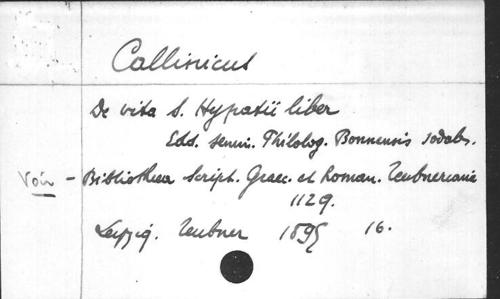 Callinicus
De vita S. Hypatii liber
Edd. semin. Philolog. Bonnensis sodales.
Voir - Bibliotheca Script. Graec. et Roman. Teubneriana
1129.
Leipzig. Teubner 1895 16.